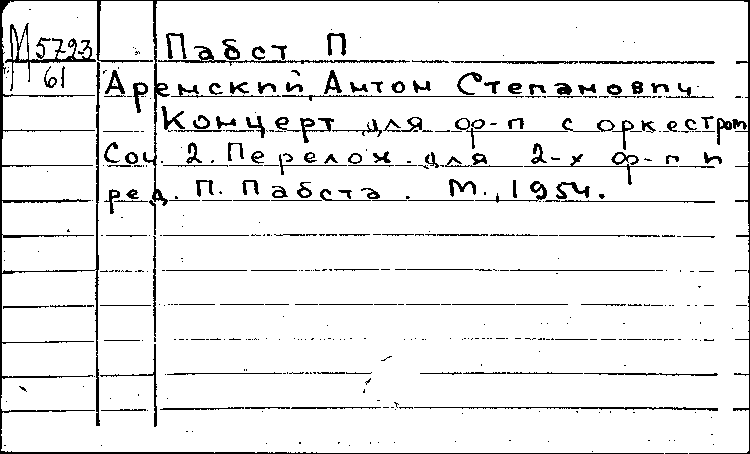 М 5723 Пабст П
61 Аренский, Антон Степанович
Концерт для ф-п с оркестром
Соч. 2. Перелож. для 2-х ф-п и
ред. П. Пабста. М., 1954.